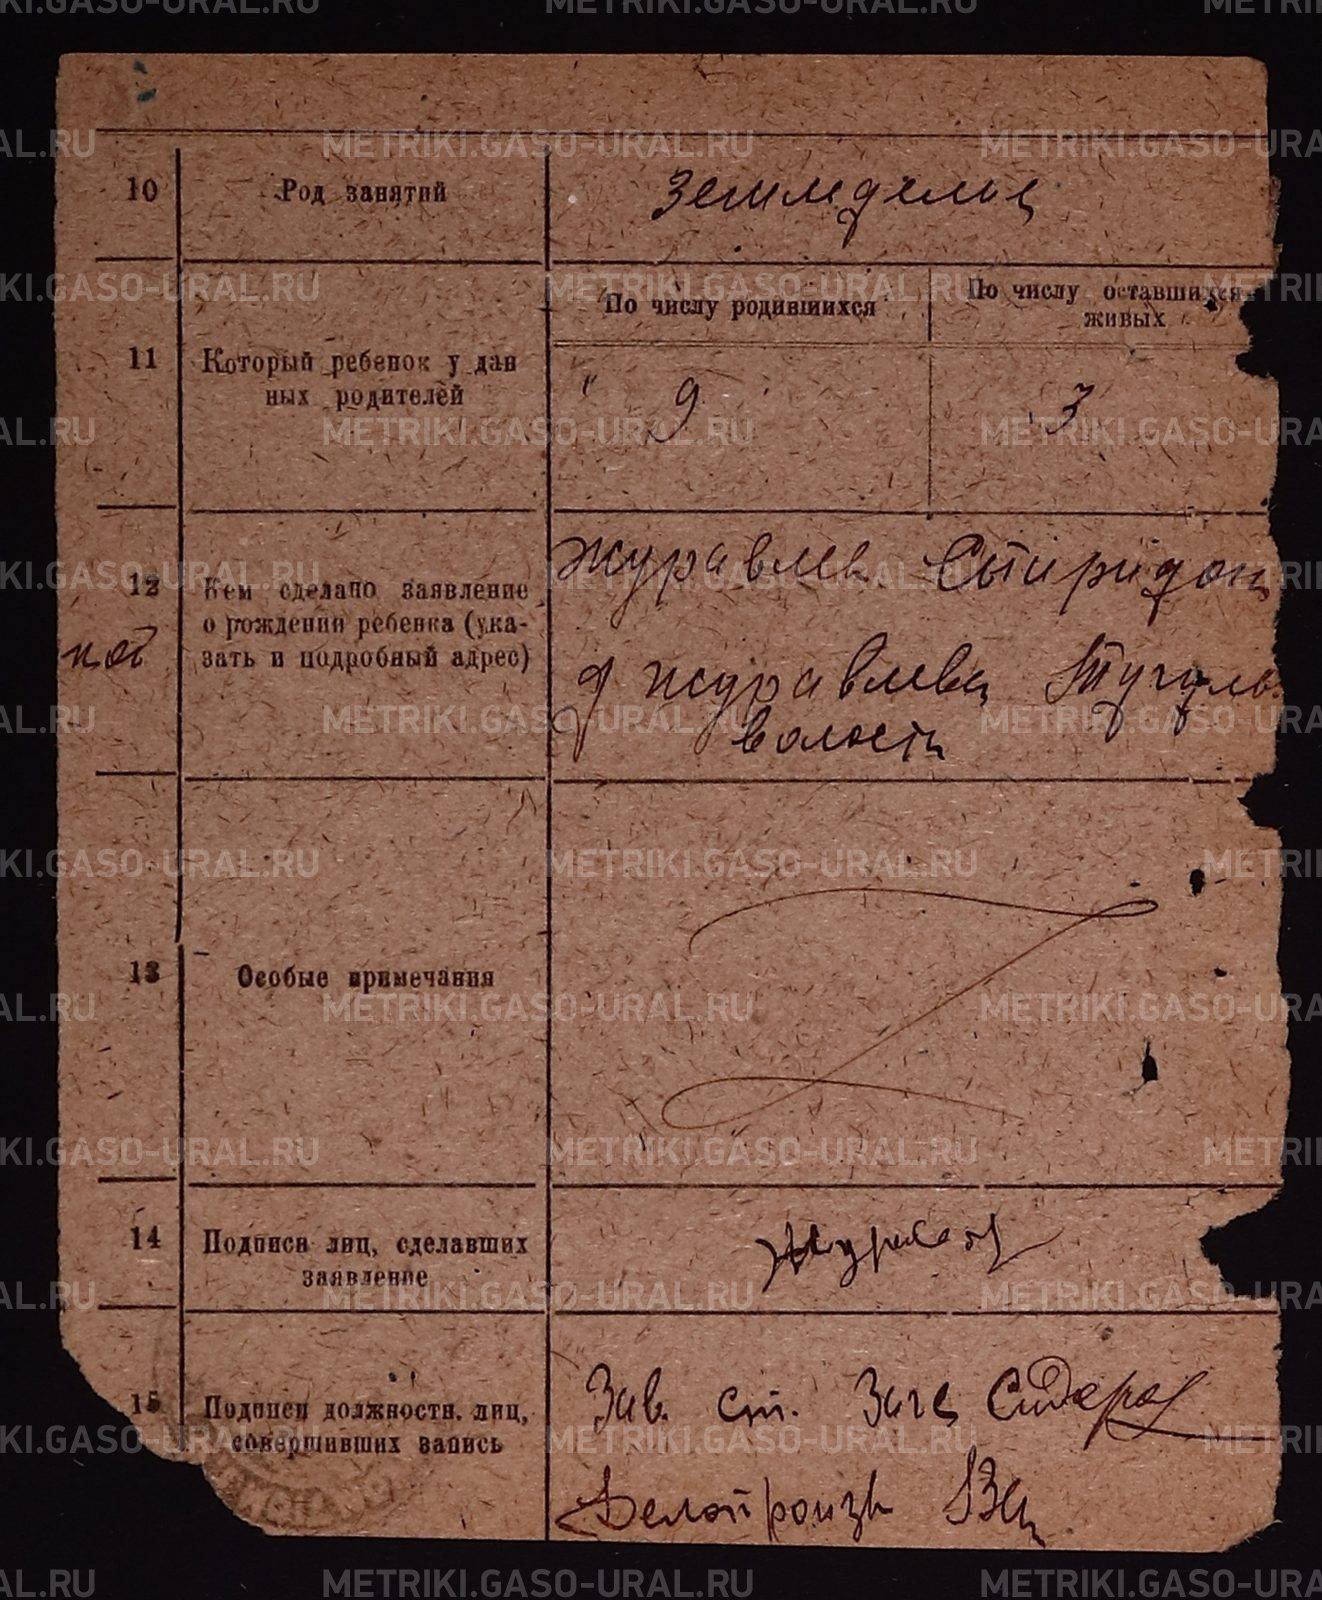 10 Род занятий земледелие
11 Который ребенок у дан
ных родителей
По числу родившихся
По числу оставшихся
живых
9 3
12 Кем сделано заявление
о рождении ребенка (ука-
зать и подробный адрес)
Журавлев Спиридон
д Журавлева Тугул
волости
13 Особые примечания
14 Подписи лиц, сделавших
заявление
Журавлев
15 Подписи должностн. лиц,
совершивших запись
Зав. ст. Загс Сидоров
Делопроизв
METRIKI.GASO-URAL.RU